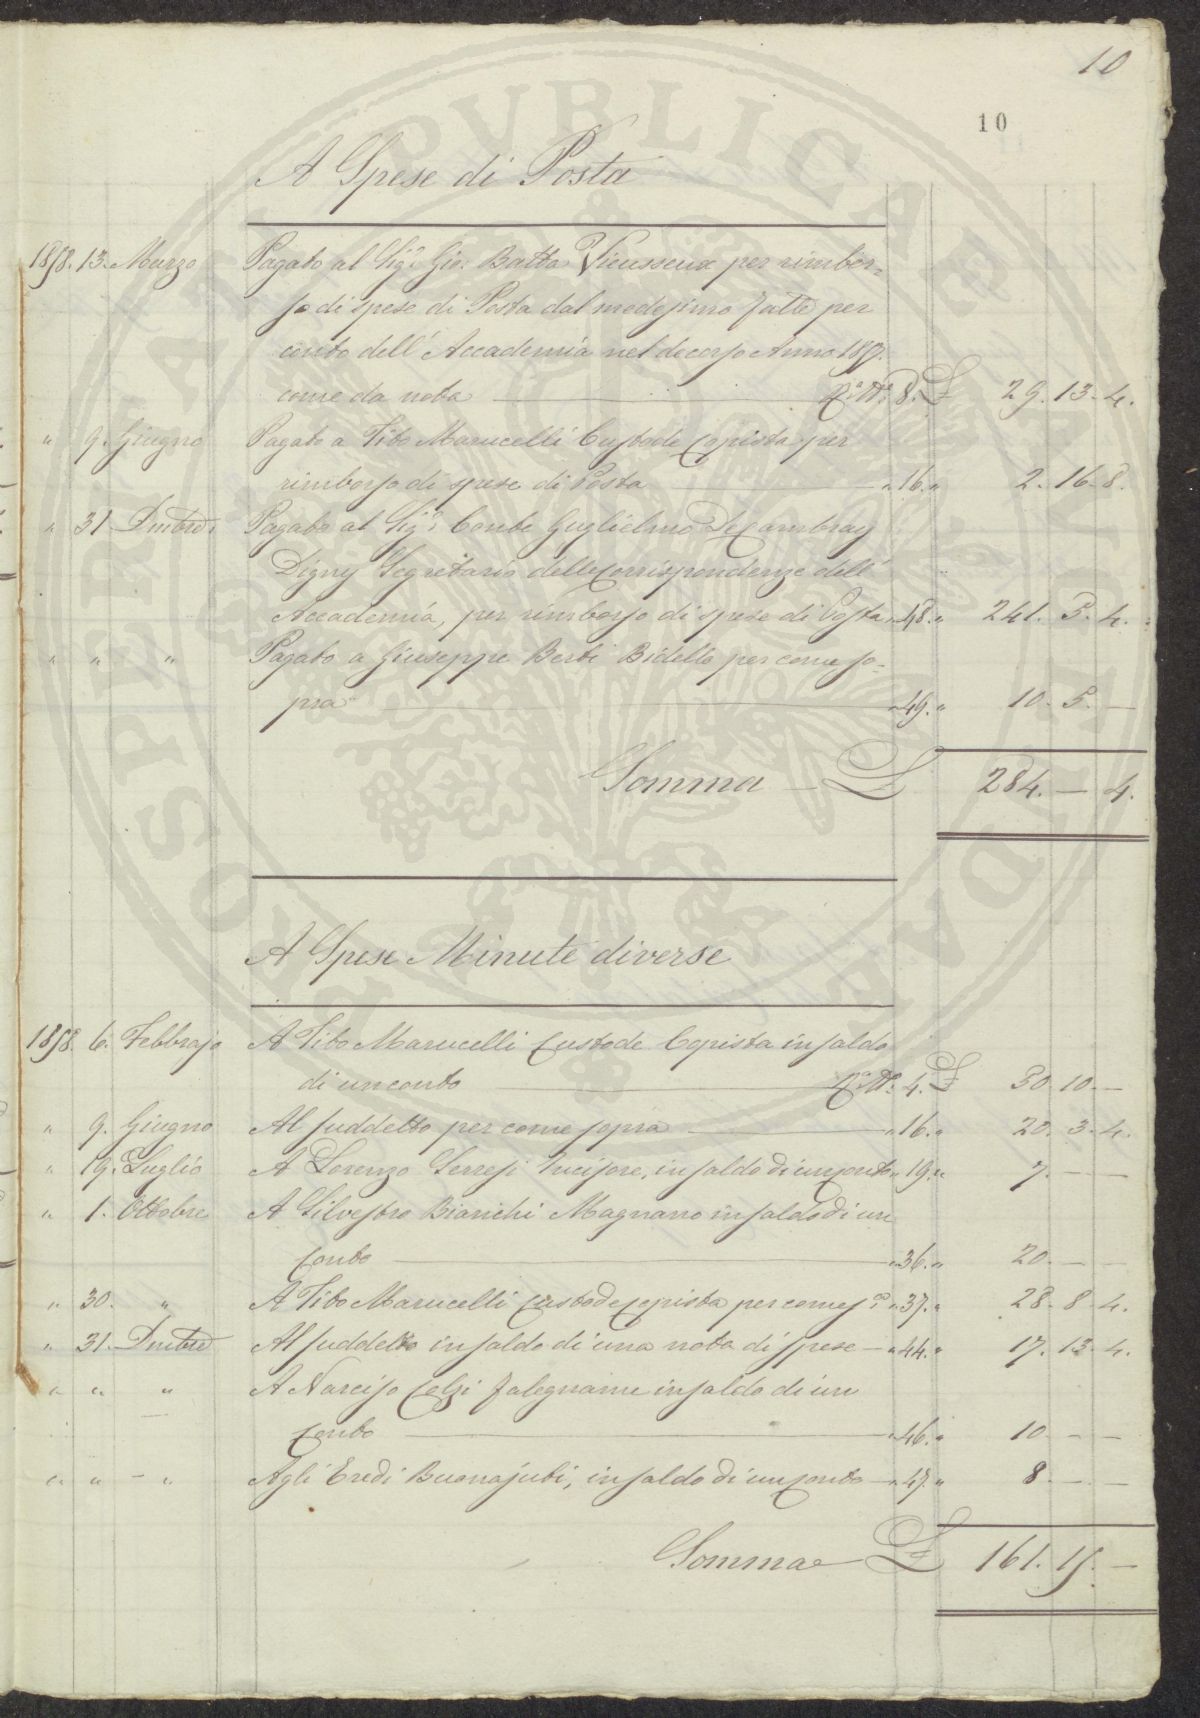 10
10
A Spese di Posta
1858. 13. Marzo Pagato al Sig.r Gio: Batta Vieusseux per rimbor-
so di spese di Posta dal medesimo fatte per
conto dell' Accademia nel decorso Anno 1857.
come da nota N.o 8. £ 29. 13. 4.
" 9. Giugno Pagato a Tito Marucelli Custode Copista per
rimborso di spese di Posta " 16. " 2. 16. 8.
" 31. Dicembre Pagato al Sig.r Conte Guglielmo De Cambray
Digny Segretario delle Corrispondenze dell'
Accademia, per rimborso di spese di Posta " 48. " 241. 5. 4.
" " " Pagato a Giuseppe Berti Bidello per come so-
pra " 49. " 10. 5. —
Somma — £ 284. — 4.
A Spese Minute diverse
1858. 6. Febbrajo A Tito Marucelli Custode Copista in saldo
di un conto N.o 4. £ 50. 10. —
" 9. Giugno Al suddetto per come sopra " 16. " 20. 3. 4.
" 19. Luglio A Lorenzo Serresi Incisore, in saldo di un conto " 19. " 7. — —
" 1. Ottobre A Silvestro Bianchi Magnano in saldo di un
conto " 36. " 20. — —
" 30. " A Tito Marucelli Custode Copista per come s.a " 37. " 28. 8. 4.
" 31. Dicembre Al suddetto in saldo di una nota di spese — " 44. " 17. 13. 4.
" " " A Narciso Celzi falegname in saldo di un
conto " 46. " 10. — —
" " — " Agli Eredi Buonajuti, in saldo di un conto — " 47. " 8. — —
Somma £ 161. 15. —